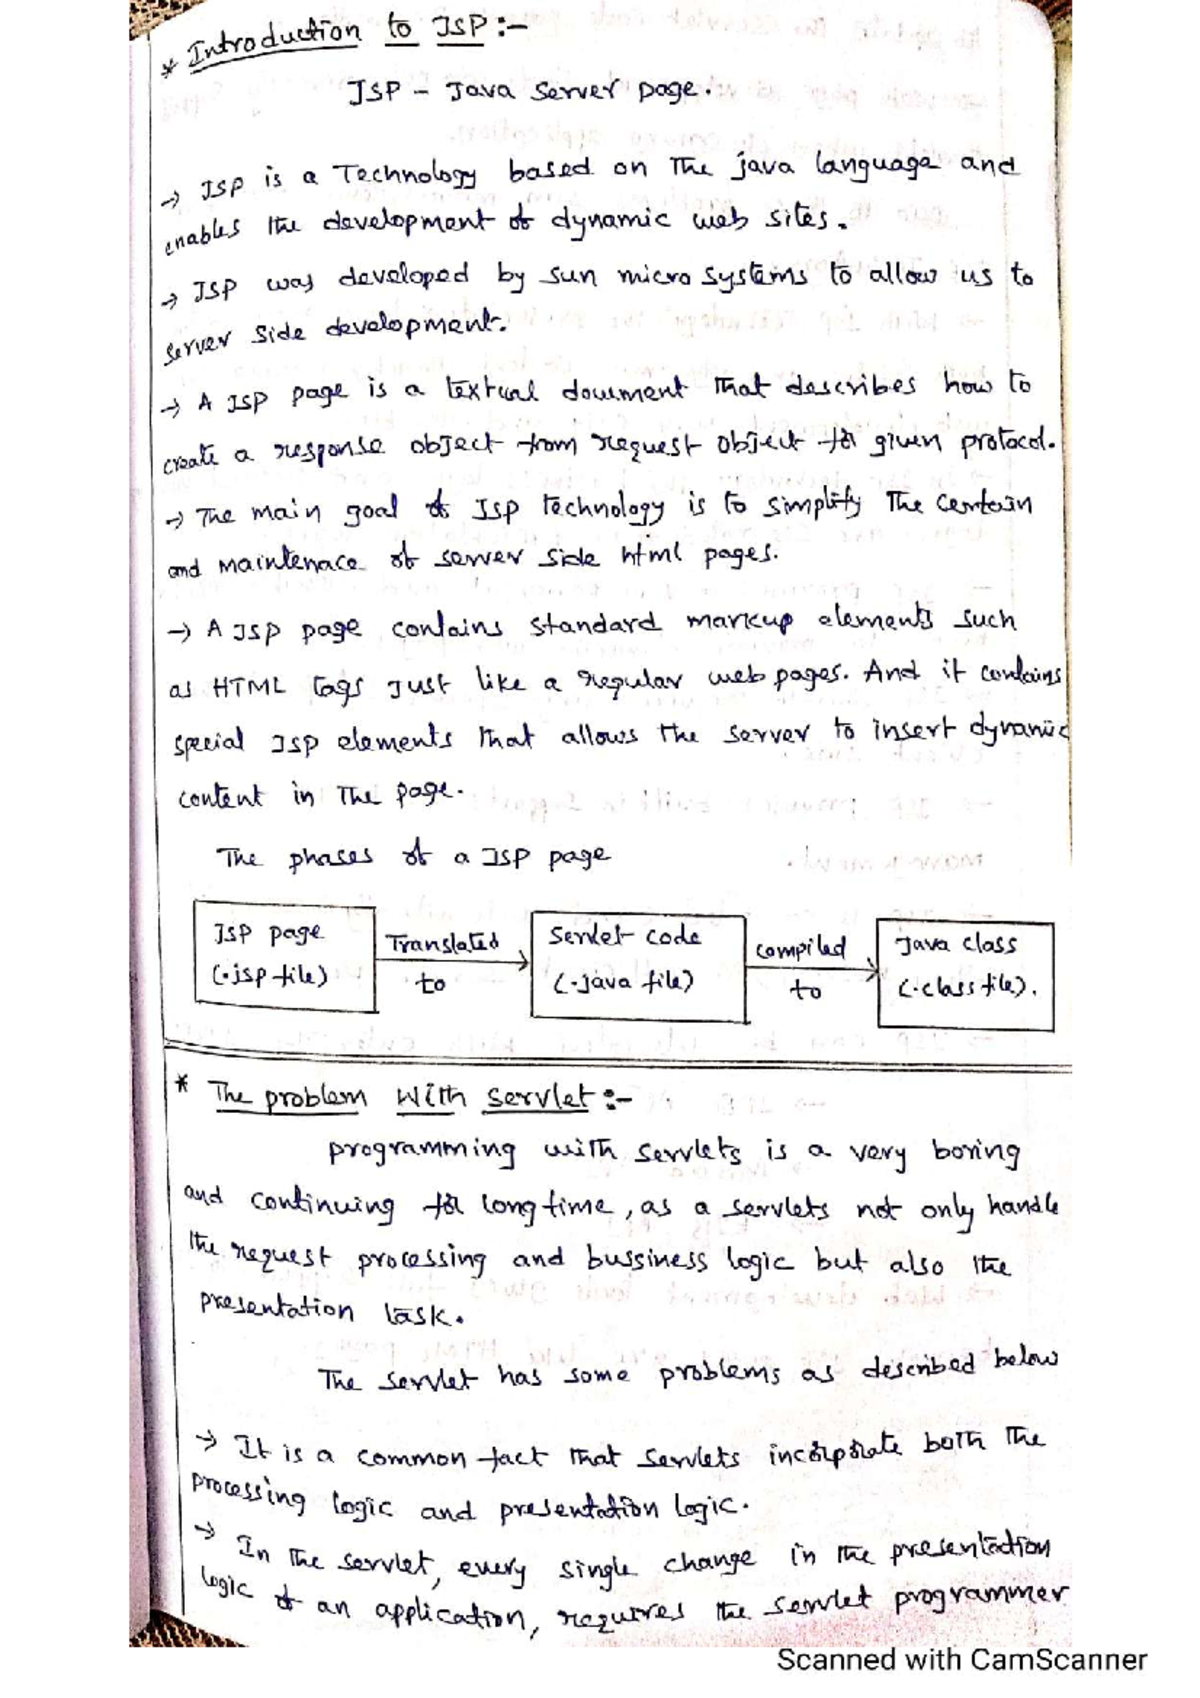 * Introduction to JSP :-
JSP - Java Server page.
→ JSP is a Technology based on The java language and
enables the development of dynamic web sites.
→ JSP was developed by sun micro systems to allow us to
server side development.
→ A JSP page is a textual document that describes how to
create a response object from request object for given protocol.
→ The main goal of JSP technology is to simplify The Centain
and maintenace of server side html pages.
→ A JSP page contains standard markup elements such
as HTML tags Just like a regular web pages. And it contains
special JSP elements that allows the server to insert dynamic
content in The page.
The phases of a JSP page
JSP page
(.jsp file)
Translated
to
Servlet code
(.java file)
compiled
to
Java class
(.class file).
* The problem With Servlet :-
programming with servlets is a very boring
and continuing for long time, as a servlets not only handle
the request processing and bussiness logic but also the
presentation task.
The servlet has some problems as described below
→ It is a common fact that servlets incorporate both the
processing logic and presentation logic.
→ In the servlet, every single change in the presentation
logic of an application, requires the servlet programmer
Scanned with CamScanner